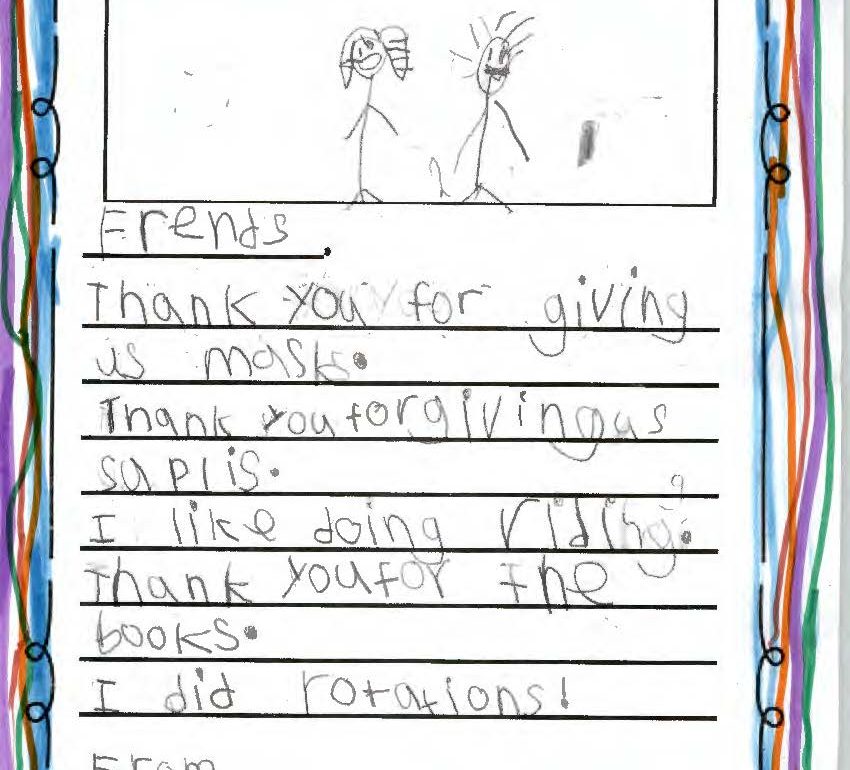 Frends.
Thank you for giving
us mask.
Thank you for giving us
saplis.
I like doing riding.
Thank you for the
books.
I did rotations!
From